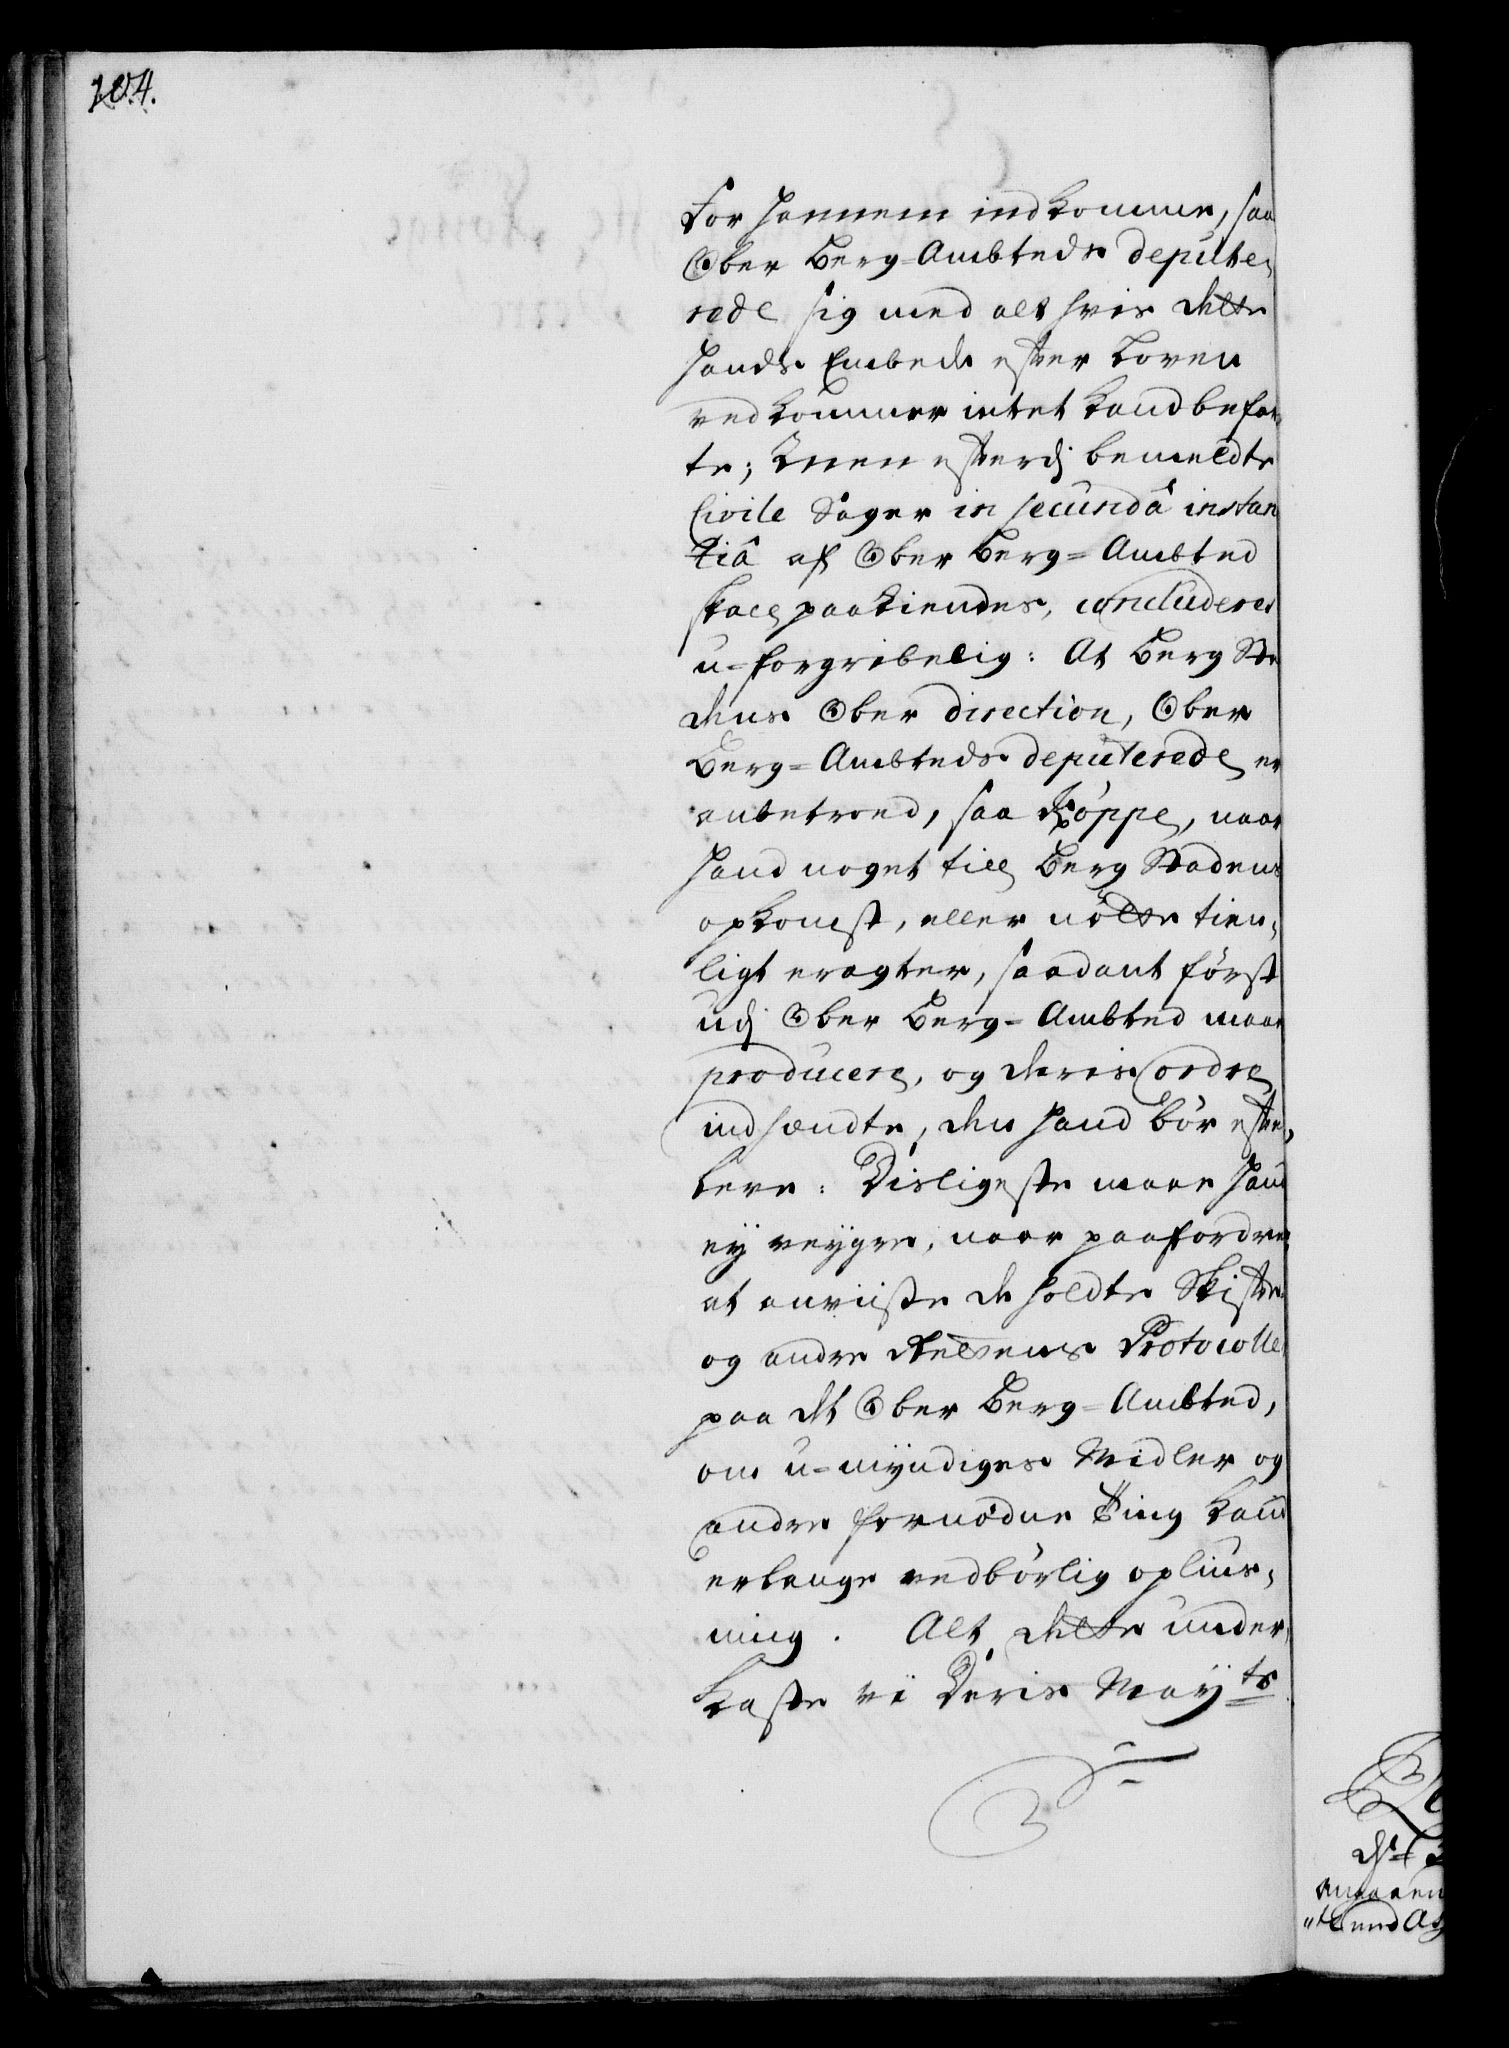 104.
for hannem indkomme, saa
Ober Berg-Ambteds depute,
rede sig med alt hvis dette
hands Embede efter Loven
vedkommer intet kand befat,
te; Men efterdj bemeldte
Civile Sager in secundâ instan
tiâ af Ober Berg-Ambted
skall paakiendes, concluderes
u-forgribelig: At Berg Sta
dens Ober direction, Ober
Berg-Ambteds deputerede er
anbetroed, saa Köppe, naar
hand noget till Berg Stadens
opkomst, eller nötte tien,
ligt eragter, saadant först
udj Ober Berg-Ambted maae
producere, og deris ordre
indhændte, den hand bör efter,
leve: Disligeste maae hand
ey veygre, naar paafordres
at anviiste de holdte Skifte
og andre Rettens Protocoller
paa det Ober Berg-Ambted,
om u-myndiges Midler og
andre fornödne Ting kand
erlange vedbörlig opliuis,
ning. Alt dette under,
kaste vi Deris Mayts